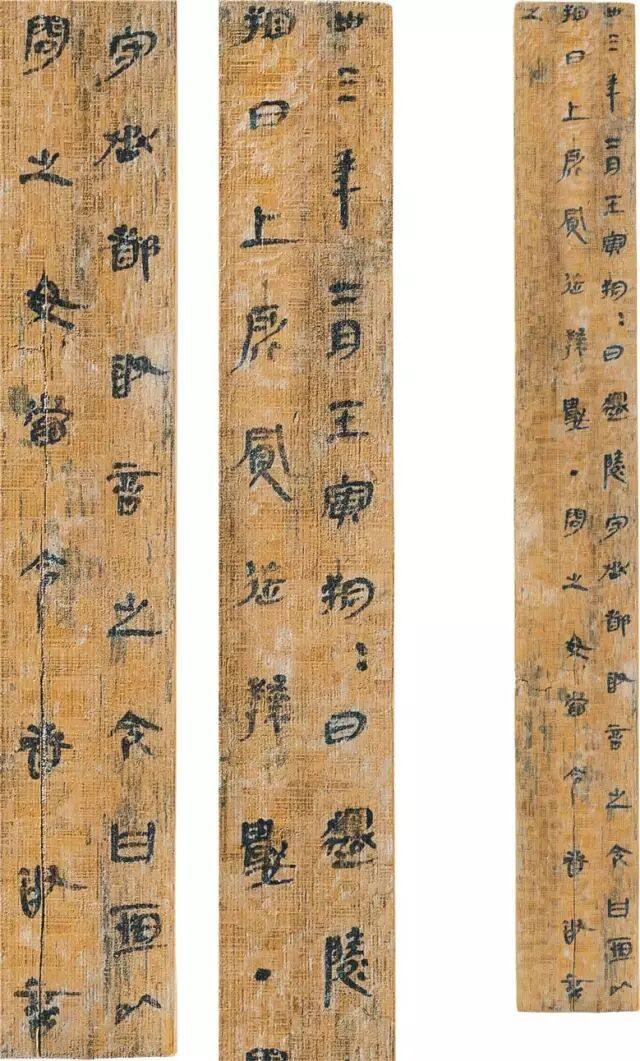 卅三年二月壬寅朔=日遷陵守丞都敢言之令曰恒以
朔日上所買徒隸數·問之毋當令者敢言
之
卅三年二月壬寅朔=日遷陵
朔日上所買徒隸數·
守丞都敢言之令曰恒以
問之毋當令者敢言